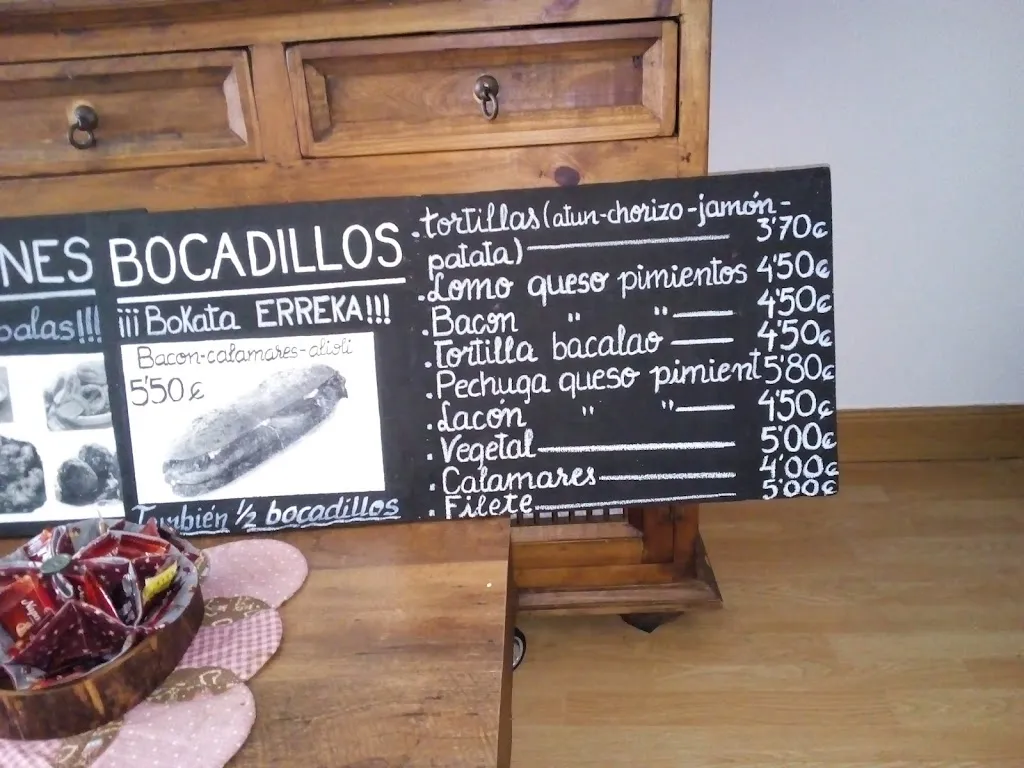 NES
BOCADILLOS
¡¡¡BoKata ERREKA!!!
Bacon-calamares-alioli
5'50€
También 1/2 bocadillos
.tortillas (atun-chorizo-jamón-
patata) 3'70€
.Lomo queso pimientos 4'50€
.Bacon " " 4'50€
.Tortilla bacalao 4'50€
.Pechuga queso pimient 5'80€
.Lacón " " 4'50€
.Vegetal 5'00€
.Calamares 4'00€
.Filete 5'00€